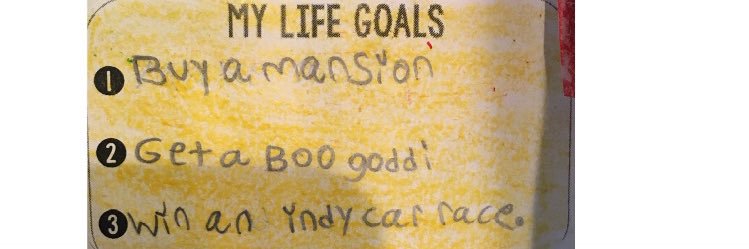 MY LIFE GOALS
1 Buy a mansion
2 Get a BOO goddi
3 Win an indy car race.